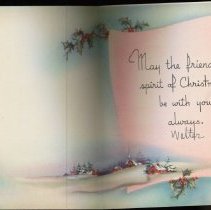 May the friend
spirit of Christm
be with you
always.